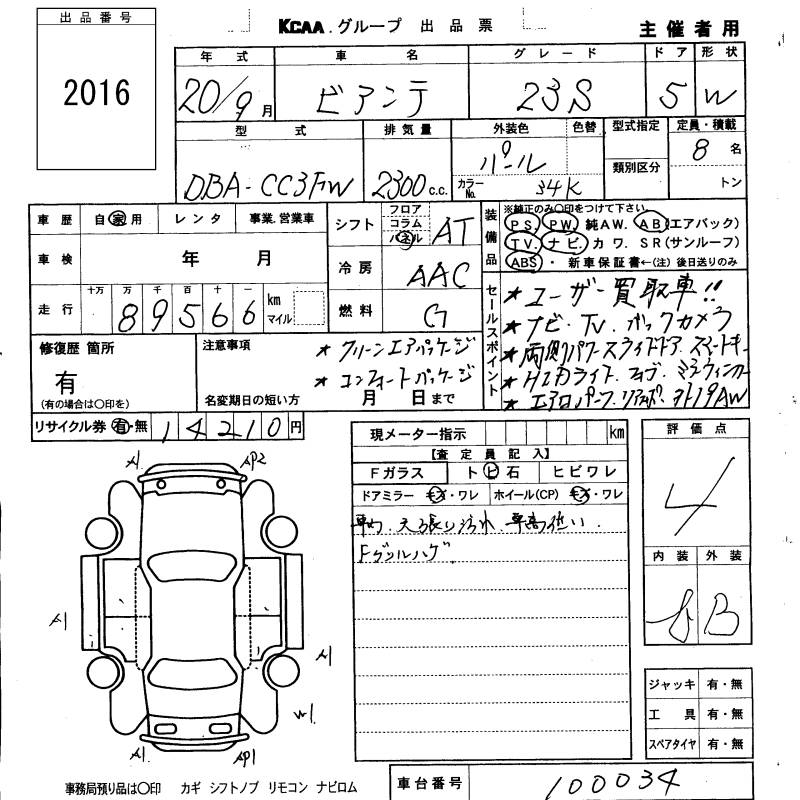 出品番号
2016
KCAA.グループ 出品票
主催者用
年式 車名 グレード ドア 形状
20/9月 ビアンテ 23S 5 W
型式 排気量 外装色 色替 型式指定 定員・積載
DBA-CC3FW 2300c.c. パール 8名
カラーNo. 34K 類別区分 トン
車歴 自家用 レンタ 事業.営業車
シフト フロア コラム パネル AT
車検 年 月
冷房 AAC
走行 十万 万 千 百 十 一
89566 km マイル
燃料 G
装備品
※純正のみ〇印をつけて下さい。
PS. PW. 純AW. AB(エアバック)
TV. ナビ. カワ. SR(サンルーフ)
ABS・新車保証書←(注)後日送りのみ
セールスポイント
★ユーザー買取車!!
★ナビ・TV.バックカメラ
★両側パワースライドドア.スマートキー
★HIDライト.フォグ.ミラーウィンカー
★エアロパーツ.リアスポ.
修復歴 箇所
有
(有の場合は〇印を)
注意事項
★クリーンエアパッケージ
★コンフォートパッケージ
名変期日の短い方 月 日まで
リサイクル券 有・無 14210円
現メーター指示 km
【査定員記入】
Fガラス トビ石 ヒビワレ
ドアミラー キズ・ワレ ホイール(CP) キズ・ワレ
車内.天張り汚れ.車高低い.
Fグリルハゲ
評価点
4
内装 外装
B
ジャッキ 有・無
工具 有・無
スペアタイヤ 有・無
A1 AP2
A1
A1
W1
A1 AP1
事務局預り品は〇印 カギ シフトノブ リモコン ナビロム
車台番号 100034